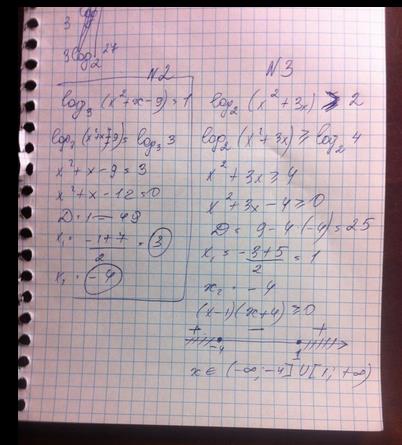 3 log
3log₂ 27
N2
log₃ (x²+x-9)=1
log₃ (x²+x-9)=log₃ 3
x²+x-9=3
x²+x-12=0
D=1 — 49
x₁= (-1+7)/2 = 3
x₂= -4
N3
log₂ (x²+3x) ≥ 2
log₂ (x²+3x) ≥ log₂ 4
x²+3x≥4
x²+3x-4≥0
D= 9-4·(-4)=25
x₁= (-3+5)/2 = 1
x₂= -4
(x-1)(x+4)≥0
+ − +
-4 1
x∈ (-∞;-4]U[1;+∞)